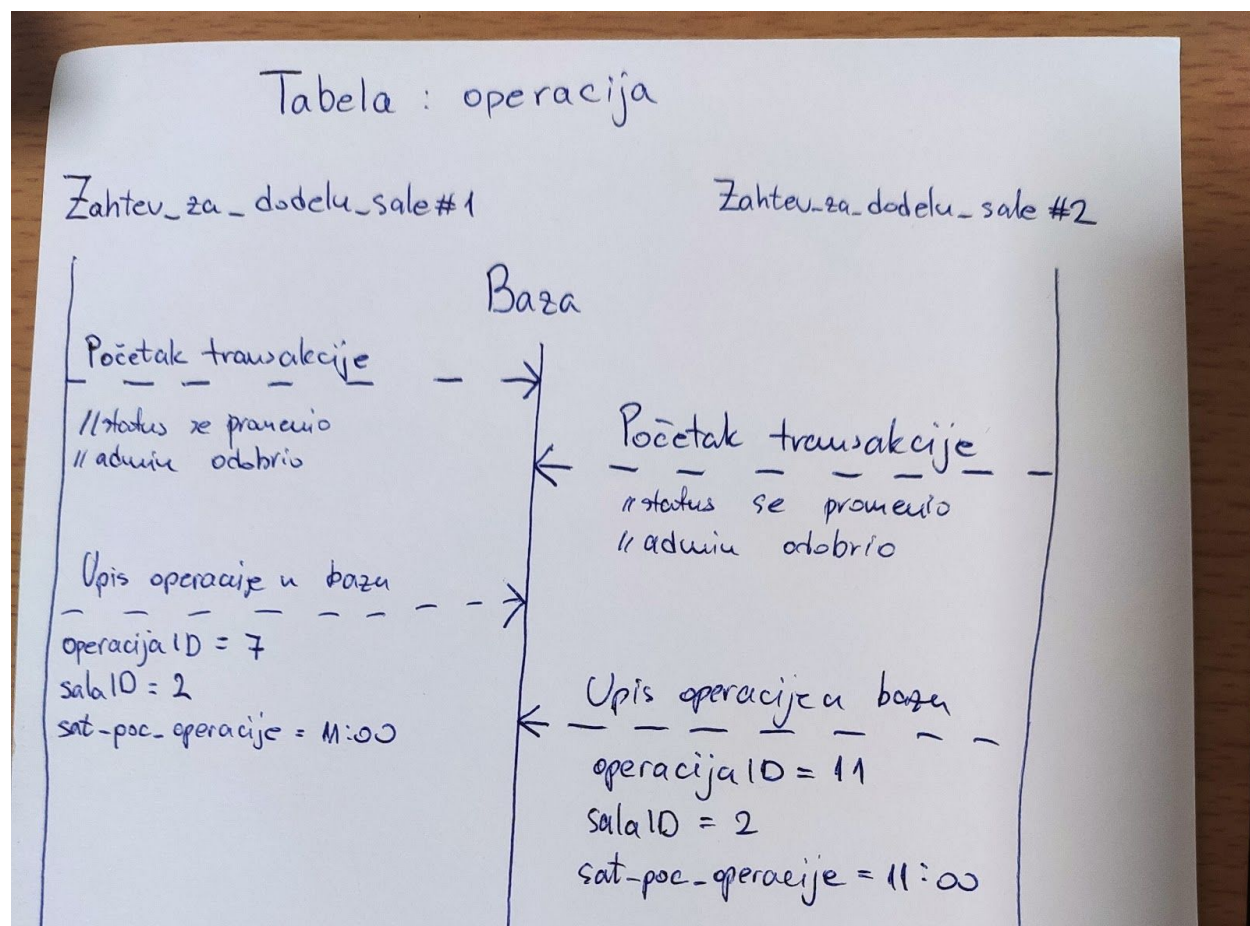 Tabela : operacija
Zahtev_za_dodelu_sale#1
Zahtev_za_dodelu_sale #2
Baza
Početak transakcije
//status se promenio
// admin odobrio
Početak transakcije
// status se promenio
// admin odobrio
Upis operacije u bazu
operacijaID = 7
salaID = 2
sat_poc_operacije = 11:00
Upis operacije u bazu
operacijaID = 11
salaID = 2
sat_poc_operacije = 11:00